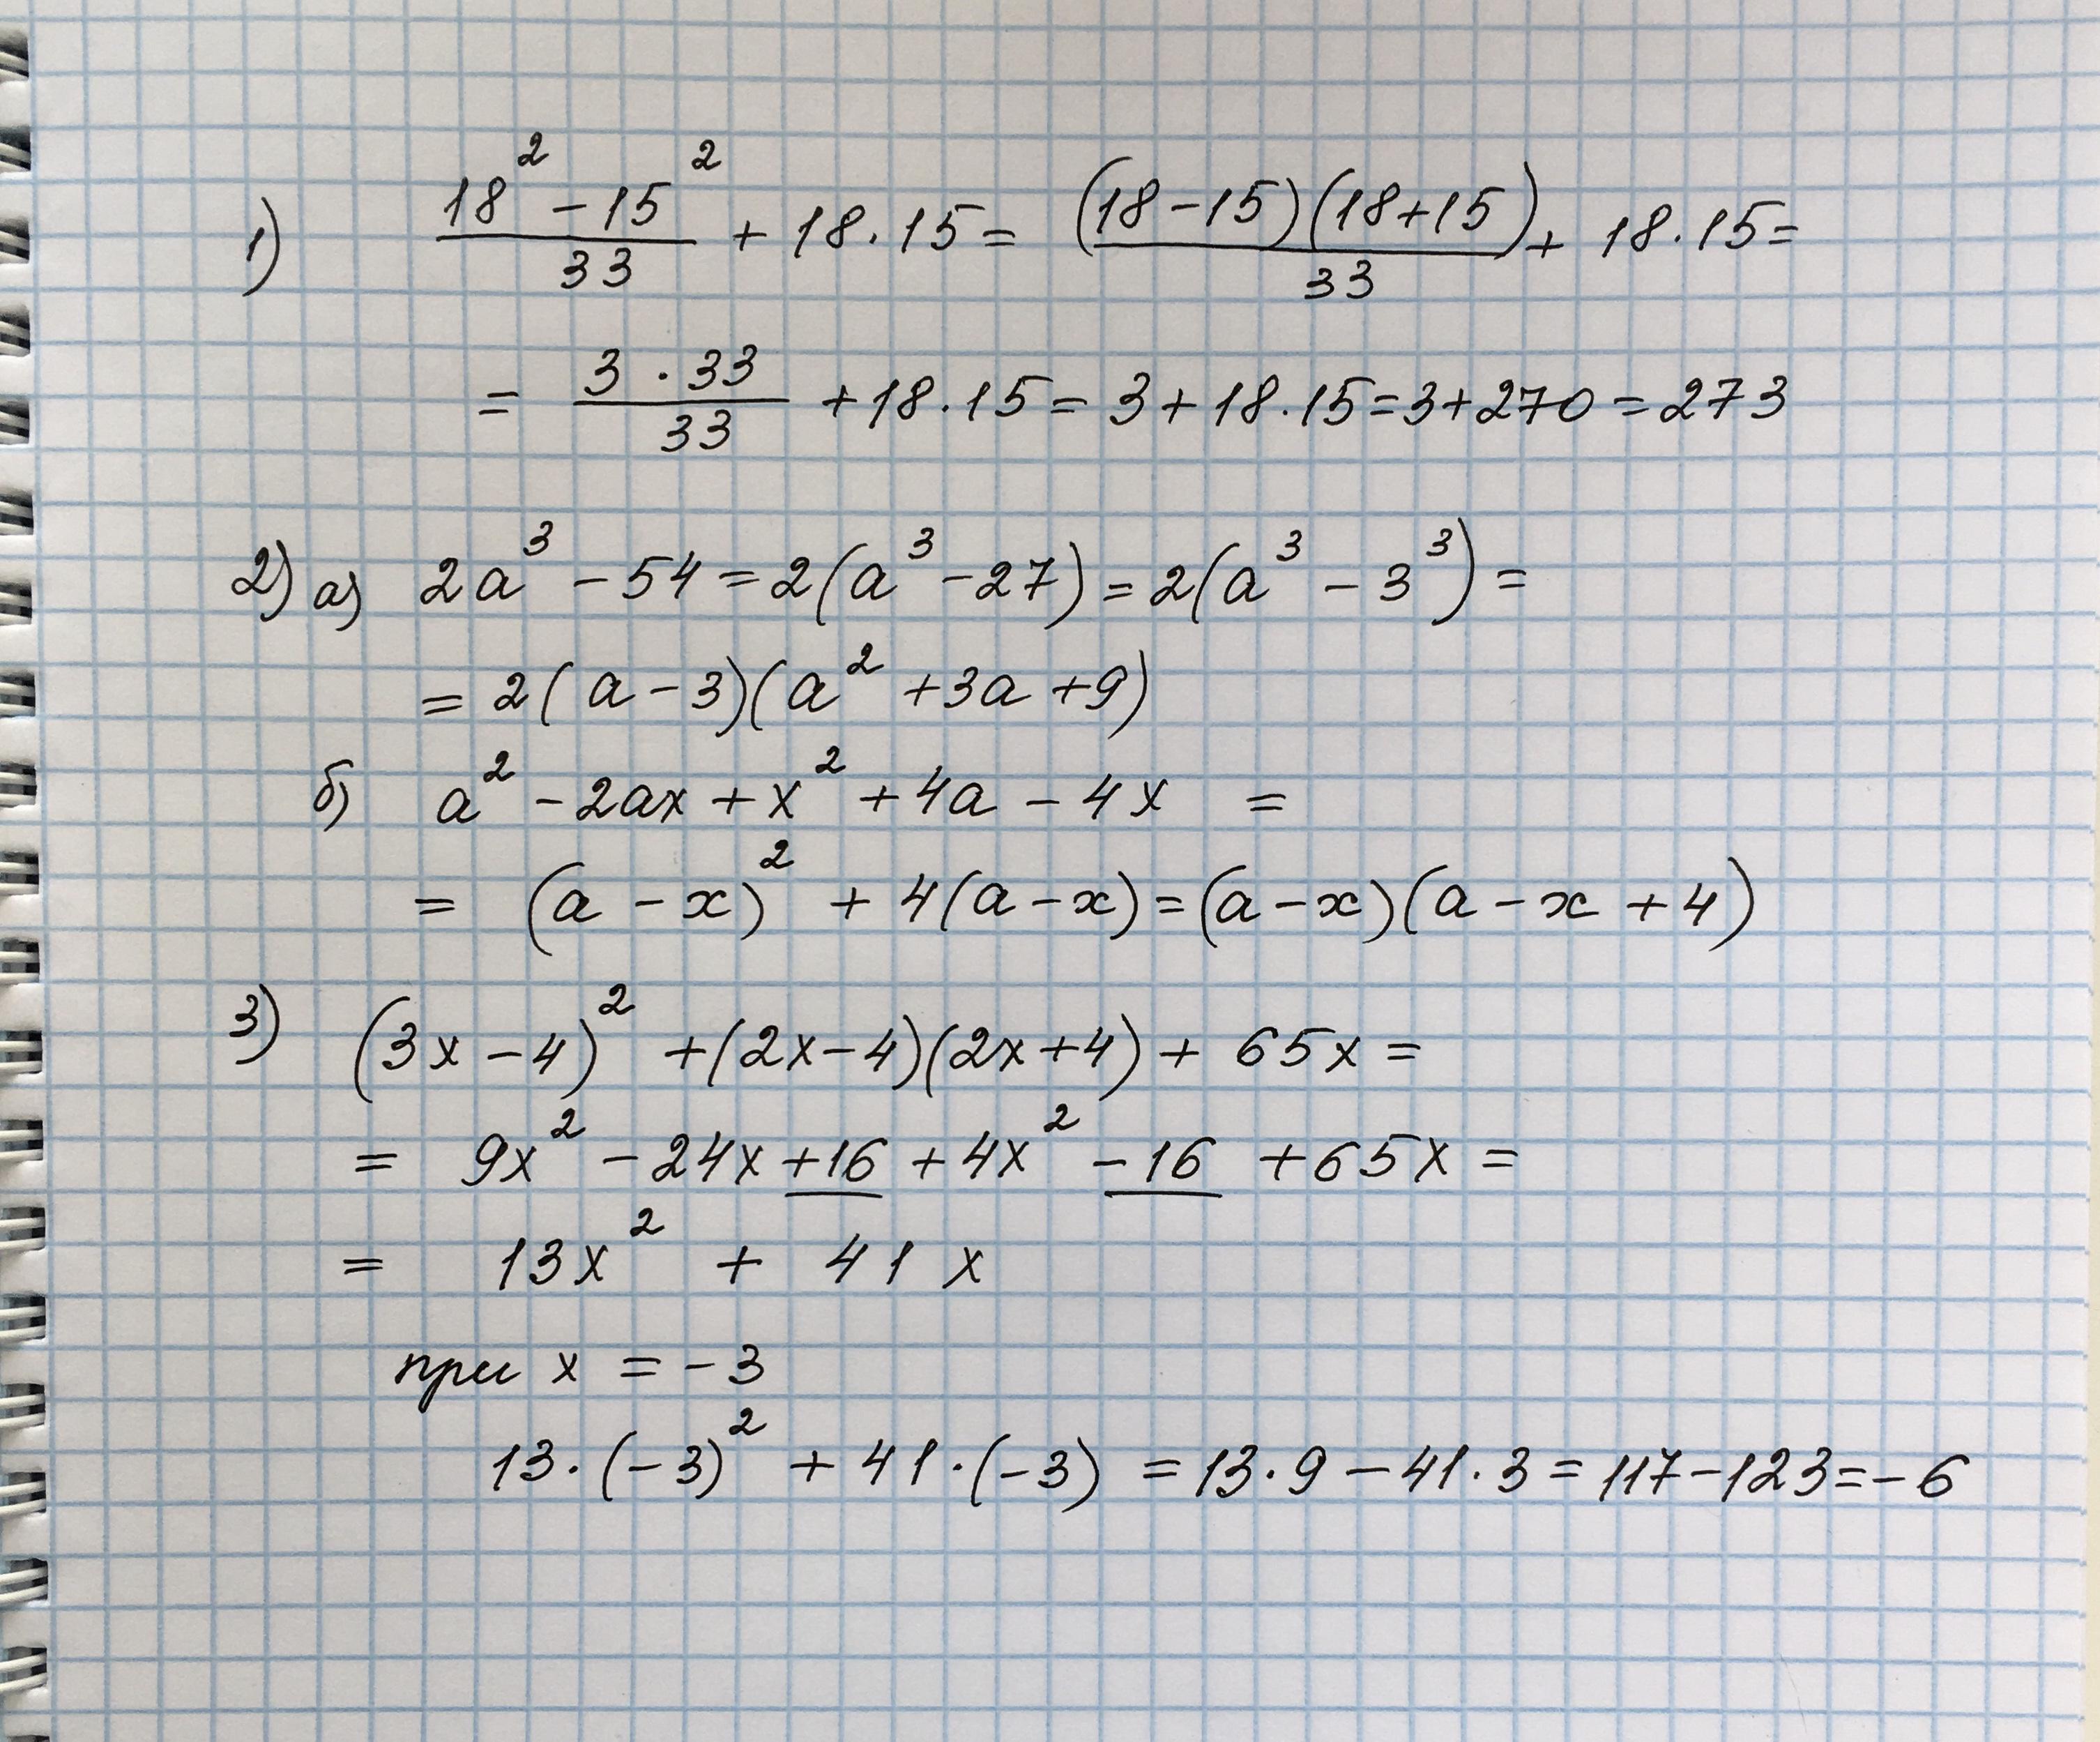 1) (18² - 15²)/33 + 18·15 = ((18-15)(18+15))/33 + 18·15 =
= (3·33)/33 + 18·15 = 3 + 18·15 = 3 + 270 = 273
2) а) 2a³ - 54 = 2(a³ - 27) = 2(a³ - 3³) =
= 2(a - 3)(a² + 3a + 9)
б) a² - 2ax + x² + 4a - 4x =
= (a - x)² + 4(a - x) = (a - x)(a - x + 4)
3) (3x - 4)² + (2x - 4)(2x + 4) + 65x =
= 9x² - 24x + 16 + 4x² - 16 + 65x =
= 13x² + 41x
при x = -3
13·(-3)² + 41·(-3) = 13·9 - 41·3 = 117 - 123 = -6